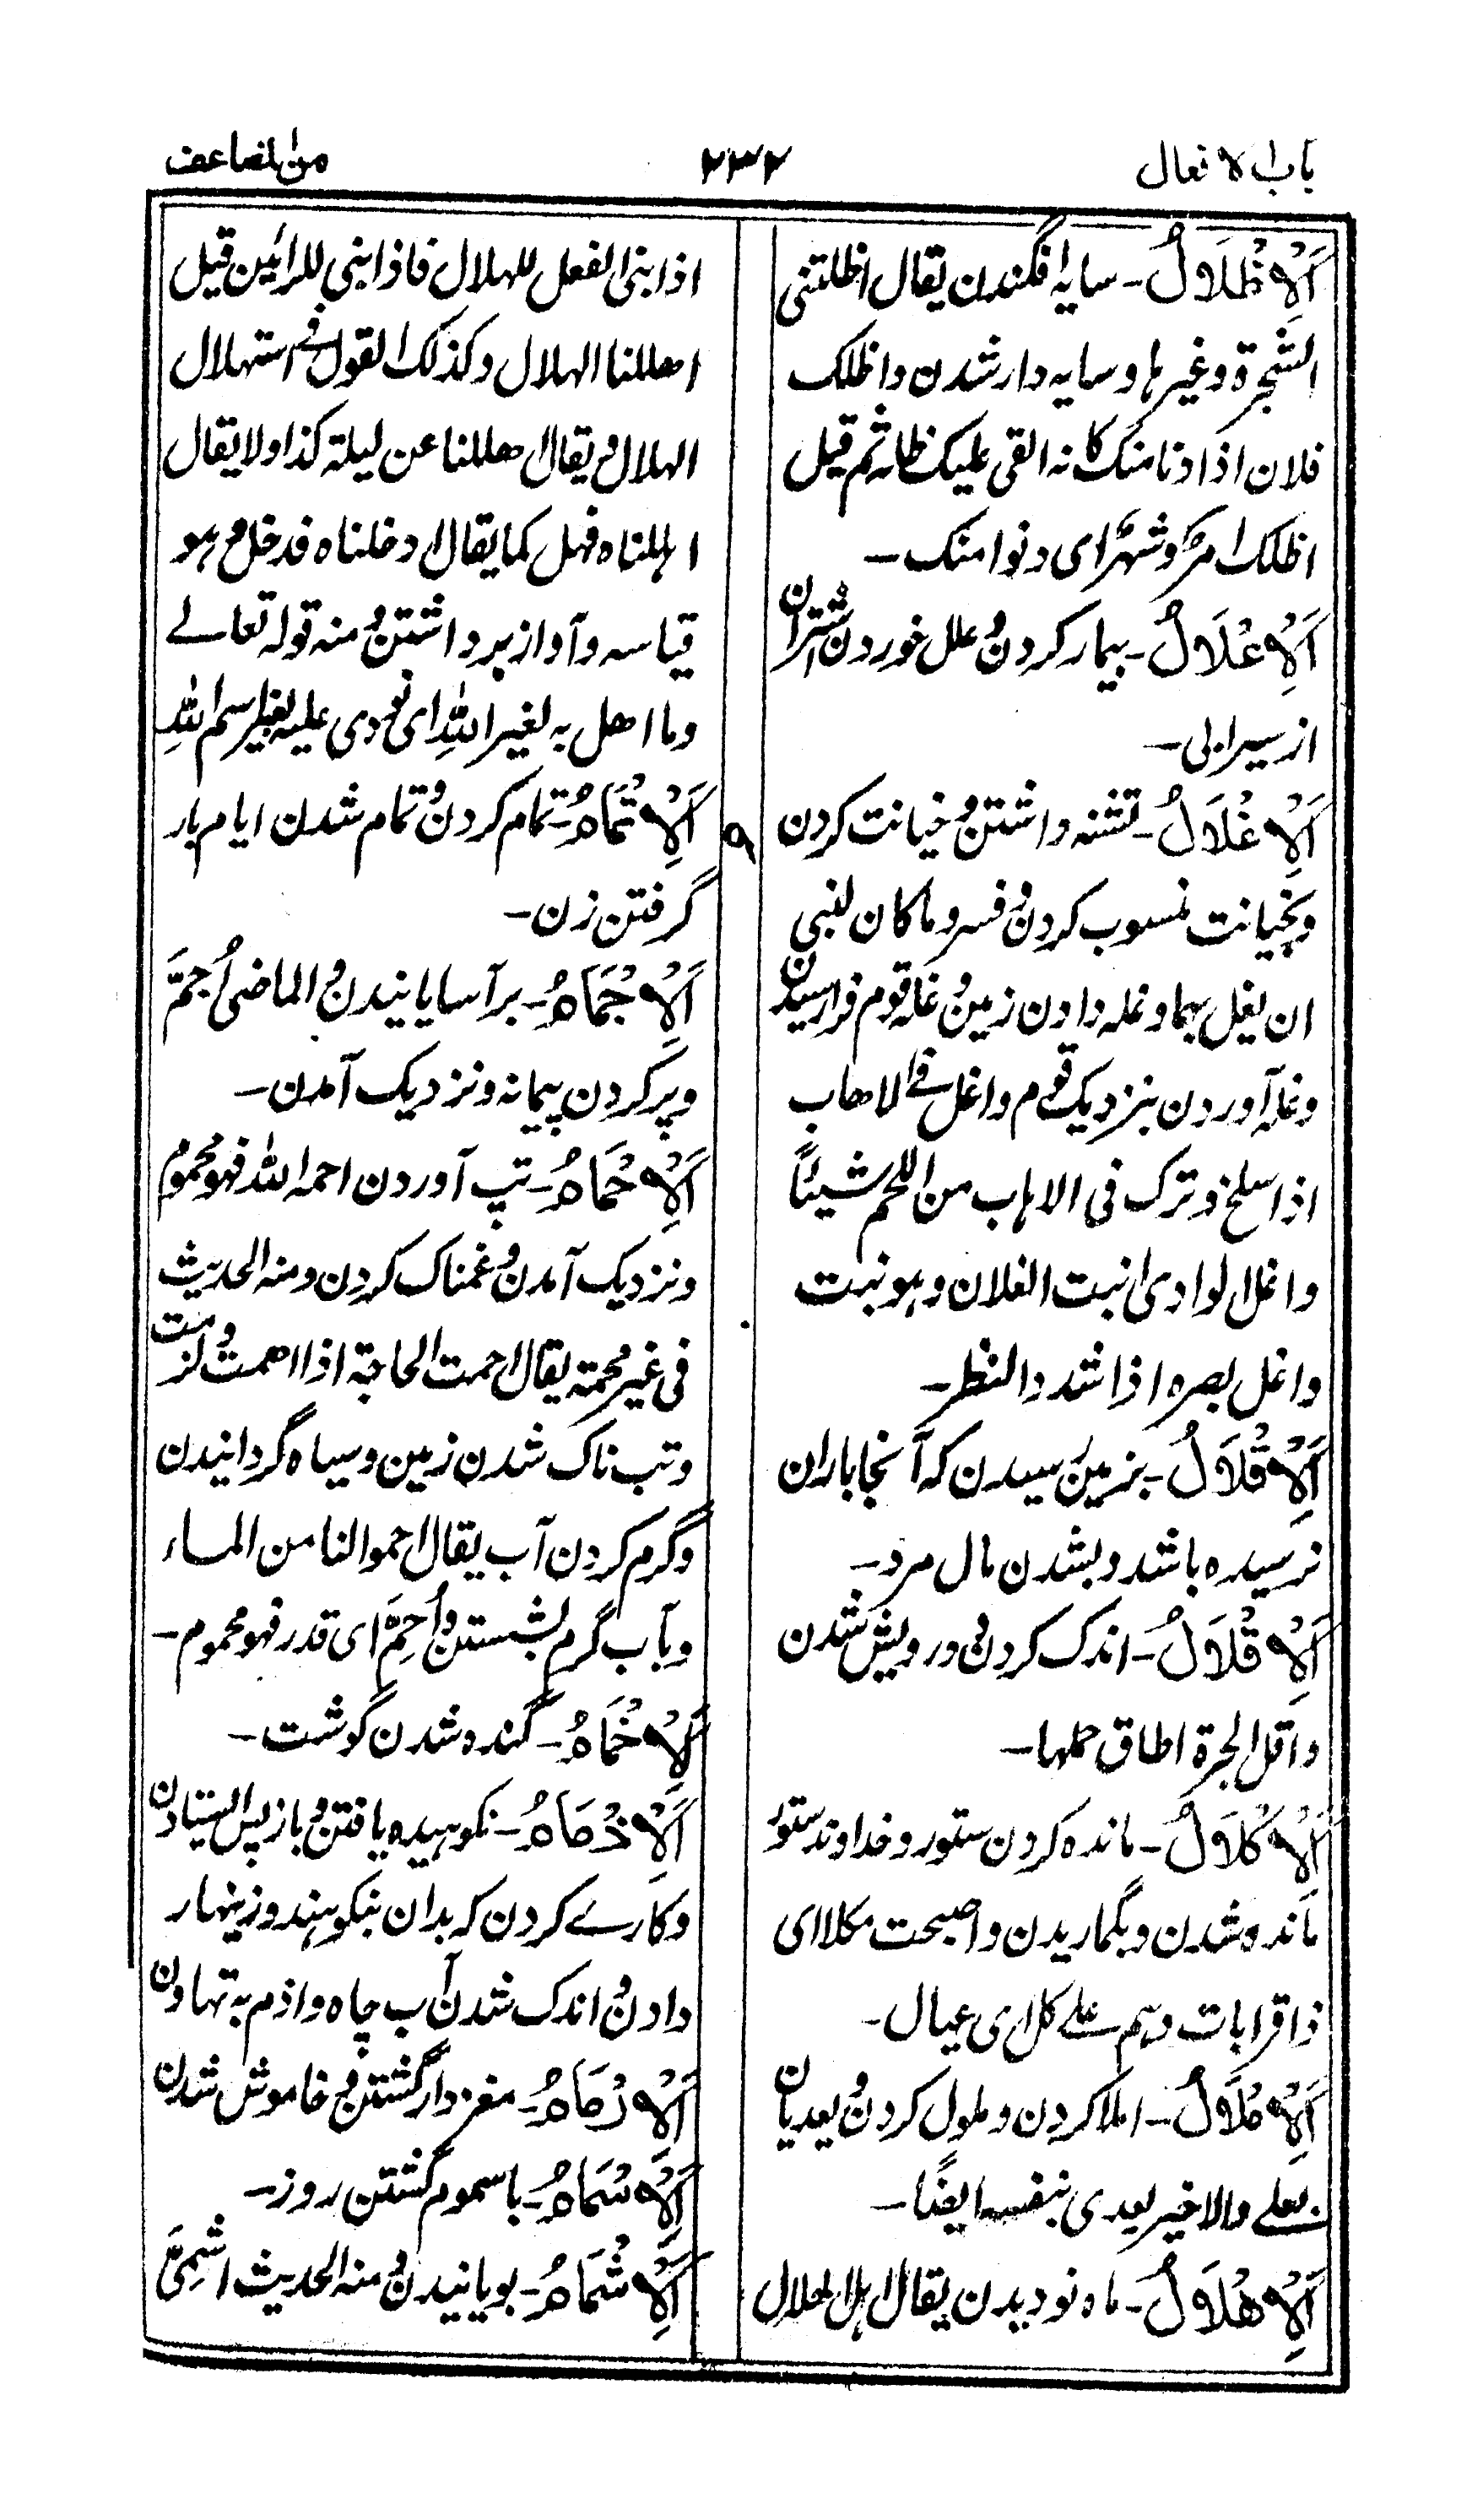 باب الافعال
۲۳۲
من المضاعف
اَلْاِظْلَالُ - سایه افگندن یقال اظلتنی
الشجرة وغیرها و سایه دار شدن و اظلک
فلان اذا دنا منک کانه القی علیک ظله ثم قیل
اظلک امرٌ و شهرٌ ای دنوا منک -
اَلْاِعْلَالُ - بیمار کردن و علل خوردن شتران
از سیرابی -
اَلْاِغْلَالُ - تشنه داشتن و خیانت کردن
و بخیانت منسوب کردن و فسر و ما کان لنبی
ان یغل بهما و غله دادن زمین و غله قوم فرا رسیدن
و غله آوردن بنزدیک قوم و اغل فی الاهاب
اذا سلخ و ترک فی الاهاب من اللحم شیئاً
و اغل الوادی انبت الغلان و هو نبت
و اغل بصره اذا شدد النظر -
اَلْاِفْلَالُ - بزمین رسیدن که آنجا باران
نرسیده باشد و بشدن مال مرد -
اَلْاِقْلَالُ - اندک کردن و درویش شدن
و اقل الجرة اطاق حملها -
اَلْاِکْلَالُ - مانده کردن ستور و خداوند ستور
مانده شدن و بگماریدن و اصبحت مکلا ای
ذا قرابات و هم علے کل ای عیال -
اَلْاِمْلَالُ - املا کردن و ملول کردن و یعدیان
بعلے والاخیر یعدی بنفسه ایضًا -
اَلْاِهْلَالُ - ماه نو دیدن یقال اهل الهلال
اذا بنی الفعل للهلال فاذا بنی للرائین قیل
اهللنا الهلال و کذلک القول فی استهلال
الهلال و یقال اهللنا عن لیلة کذا و لا یقال
اهللناه فهل کما یقال ادخلناه فدخل و هو
قیاسه و آواز برداشتن و منه قوله تعالے
و ما اهل به لغیر اللهِ ای نودی علیه بغیر اسم اللهِ
اَلْاِتْمَامُ - تمام کردن و تمام شدن ایام بار
گرفتن زن -
اَلْاِجْمَامُ - بر آسایانیدن و الماضی اُجمَّ
و پر کردن پیمانه و نزدیک آمدن -
اَلْاِحْمَامُ - تپ آوردن احمه الله فهو محموم
و نزدیک آمدن و غمناک کردن و منه الحدیث
فی غیر محمة یقال احمت الحاجة اذا اهمت و لزمت
و تب ناک شدن زمین و سیاه گردانیدن
و گرم کردن آب یقال احموا لنا من الماء
و بآب گرم بشستن و اُحِمَّ ای قدر فهو محموم -
اَلْاِخْمَامُ - گنده شدن گوشت -
اَلْاِذْمَامُ - نکوهیده یافتن و باز پس ایستادن
و کارے کردن که بدان بنکوهند و زینهار
دادن و اندک شدن آب چاه و اذم به تهاون
اَلْاِرْمَامُ - مغزدار گشتن و خاموش شدن
اَلْاِسْمَامُ - با سموم گشتن روز -
اَلْاِشْمَامُ - بویانیدن و منه الحدیث اشمِیَّ